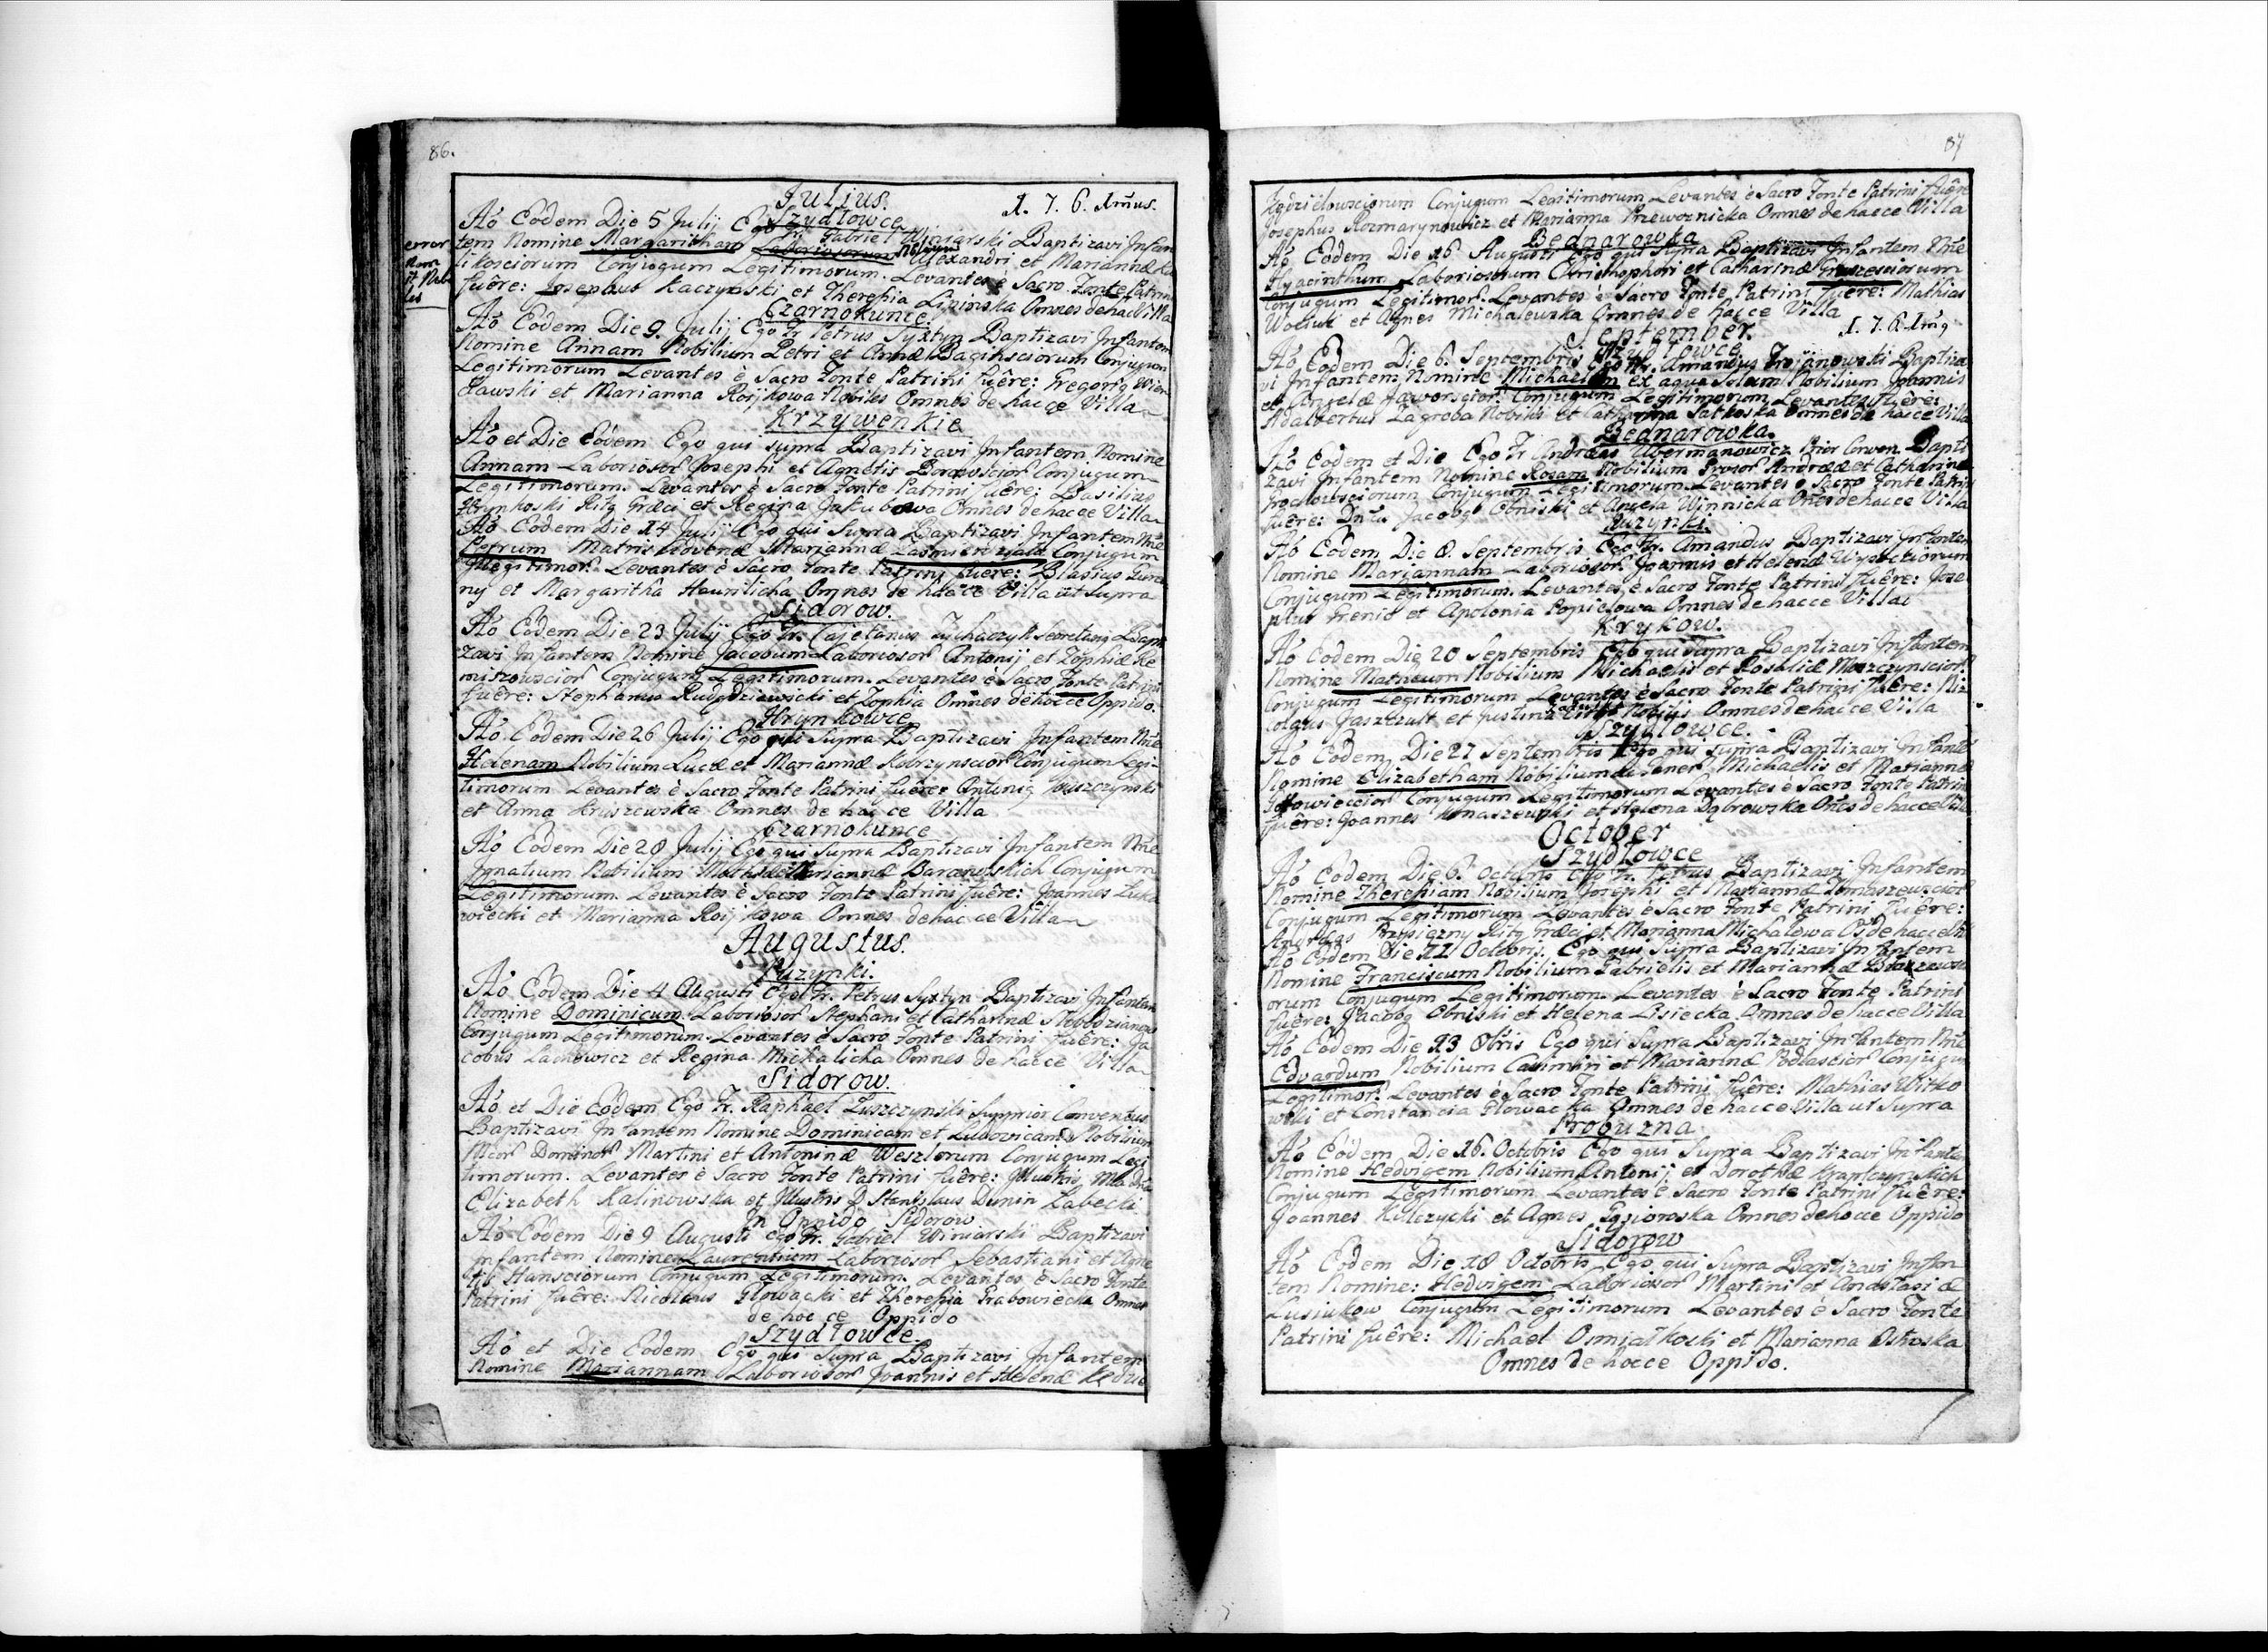 86.
Julius.
1. 7. 6. 1mus.
Szydłowce
Aõ Eodem Die 5 Julij Ego Fr. Gabriel Winiarski Baptizavi Infan
tem Nomine Margaritham Laboriosorum Nobilium Alexandri et Mariannæ
error
Nam
st Nobi
les
likosciorum Conjugum Legitimorum. Levantes è Sacro Fonte Patrini
fuêre: Josephus Kaczynski et Theresia Lipinska Omnes de hac Villa
Czarnokunce.
Aõ Eodem Die 9 Julij Ego Fr Petrus Syxtyn Baptizavi Infantem
Nomine Annam Nobilium Petri et Annæ Baginsciorum Conjugum
Legitimorum Levantes è Sacro Fonte Patrini fuêre: Gregorig
ławski et Marianna Roijkowa Nobiles Omnes de hacce Villa
Krzywenkie
Aõ et Die Eodem Ego qui supra Baptizavi Infantem Nomine
Annam Laboriosor Josephi et Agnetis Conjugum
Legitimorum. Levantes è Sacro Fonte Patrini fuêre: Basilius
Hrynkoski Ritg Græci et Regina Jakubowa Omnes de hacce Villa
Aõ Eodem Die 14 Julij Ego qui Supra Baptizavi Infantem Nne
Petrum Matris Advenæ Mariannæ Conjugum
Illegitimor. Levantes è Sacro Fonte Patrini fuêre: Blasius
ny et Margaritha Hawrilicha Omnes de hacce Villa ut Supra
Sidorow.
Aõ Eodem Die 23 Julij Ego Fr. Cajetanus Baptis
zavi Infantem Nomine Jacobum Laboriosor Antonij et Zophiæ Re
miszowscior Conjugum Legitimorum. Levantes è Sacro Fonte Patrini
fuêre: Stephanus et Zophia Omnes de hocce Oppido.
Hrynkowce
Aõ Eodem Die 26 Julij Ego qui Supra Baptizavi Infantem Nne
Helenam Nobilium Lucæ et Mariannæ Conjugum Legi-
timorum Levantes è Sacro Fonte Patrini fuêre: Antonig
et Anna Kruszewska Omnes de hacce Villa
Czarnokunce
Aõ Eodem Die 28 Julij Ego qui Supra Baptizavi Infantem Nne
Ignatium Nobilium Mathiæ et Mariannæ Baranowskich Conjugum
Legitimorum. Levantes è Sacro Fonte Patrini fuêre: Joannes Luka
wiecki et Marianna Roijkowa Omnes de hacce Villa
Augustus.
Zuzynki.
Aõ Eodem Die 4 Augusti Ego Fr. Petrus Syxtyn Baptizavi Infantem
Nomine Dominicum Laboriosor Stephani et Catharinæ
Conjugum Legitimorum. Levantes è Sacro Fonte Patrini fuêre: Ja
cobus Lachowicz et Regina Michalicha Omnes de hacce Villa
Sidorow.
Aõ et Die Eodem Ego Fr. Raphael Suprior Conventus
Baptizavi Infantem Nomine Dominicam et Ludovicam Nobilium
Mcor Dominor Martini et Antoninæ Weszlorum Conjugum Legi
timorum. Levantes è Sacro Fonte Patrini fuêre: Illustris
Elizabeth Kalinowska et Illustris D Stanislaus Dunin Łabęcki
In Oppido Sidorow
Aõ Eodem Die 9 Augusti ego Fr. Gabriel Winiarski Baptizavi
Infantem Nomine Laurentium Laboriosor Sebastiani et Agne
tis Hansciorum Conjugum Legitimorum. Levantes è Sacro Fonte
Patrini fuêre: Nicolaus Głowacki et Theresia Grabowiecka Omnes
de hocce Oppido
Szydłowce.
Aõ et Die Eodem Ego qui Supra Baptizavi Infantem
Nomine Mariannam Laboriosor Joannis et Helenæ
87
Conjugum Legitimorum Levantes è Sacro Fonte Patrini fuêre
Josephus Rozmarynowicz et Marianna Przewoznicka Omnes de hacce Villa
Bednarowka
Aõ Eodem Die 16 Augusti Ego qui Supra Baptizavi Infantem Nne
Hyacinthum Laboriosorum Christophori et Catharinæ
Conjugum Legitimor. Levantes è Sacro Fonte Patrini fuêre: Mathias
Woliuk et Agnes Michalewska Omnes de hacce Villa
September.
1. 7. 6. 1mg
Szydłowce
Aõ Eodem Die 6. Septembris Ego Fr. Amandus Trojanowski Baptiza
vi Infantem Nomine Michaelem ex aqua Solum Nobilium Joannis
et Angelæ Jaworscior. Conjugum Legitimorum Levantes fuêre:
Adalbertus Zagroba Nobilis et Catharina Satkoska Omnes de hacce Villa
Bednarowka.
Aõ Eodem et Die Ego Fr Andreas Ubermanowicz Prior Conven. Bapti
zavi Infantem Nomine Rosam Nobilium Andreæ et Catharinæ
Grochowsciorum Conjugum Legitimorum. Levantes è Sacro Fonte Patrini
fuêre: Jacobg Obniski et Angela Winnicka Omes de hacce Villa
Zuzynki.
Aõ Eodem Die 8. Septembris Ego Fr. Amandus Baptizavi Infantem
Nomine Mariannam Laboriosor Joannis et Helenæ Wysoctiorum
Conjugum Legitimorum. Levantes è Sacro Fonte Patrini fuêre: Jose
phus et Apolonia Popielowa Omnes de hacce Villa
Krykow.
Aõ Eodem Die 20 Septembris Ego qui Supra Baptizavi Infantem
Nomine Matheum Nobilium Michaelis et Rosaliæ
Conjugum Legitimorum Levantes è Sacro Fonte Patrini fuêre: Ni
colaus Jasztult et Justina Nobilis Omnes de hacce Villa
Szydlowce.
Aõ Eodem Die 27 Septembris Ego qui supra Baptizavi Infante
Nomine Elizabetham Nobilium Michaelis et Mariannæ
Gotowieccior Conjugum Legitimorum Levantes è Sacro Fonte Patrini
fuêre: Joannes Tomaszewski et Helena Dąbrowska Omes de hacce Villa
October
Szydłowce
Aõ Eodem Die 6. Octobris Ego Fr. Petrus Baptizavi Infantem
Nomine Theresiam Nobilium Josephi et Mariannæ Tomaszewscior
Conjugum Legitimorum Levantes è Sacro Fonte Patrini fuêre:
Andreas Przysiezny Ritg Græci et Marianna Michalewa Os de hacce Vil
Aõ Eodem Die 11 Octobris Ego qui Supra Baptizavi Infantem
Nomine Franciscum Nobilium Gabrielis et Mariannæ
orum Conjugum Legitimorum. Levantes è Sacro Fonte Patrini
fuêre: Jacobg Obniski et Helena Lisiecka Omnes de hacce Villa
Aõ Eodem Die 13 8bris Ego qui Supra Baptizavi Infantem Nne
Edvardum Nobilium Casimiri et Mariannæ Podlascior Conjugum
Legitimor. Levantes è Sacro Fonte Patrini fuêre: Mathias Witko
wski et Constancia Głowacka Omnes de hacce Villa ut Supra
Probuzna
Aõ Eodem Die 16. Octobris Ego qui Supra Baptizavi Infante
Nomine Hedvigem Nobilium Antonij et Dorothæ
Conjugum Legitimorum Levantes è Sacro Fonte Patrini fuêre:
Joannes Kulczycki et Agnes Gąsiorowska Omnes de hocce Oppido
Sidorow
Aõ Eodem Die 18 Octobris Ego qui Supra Baptizavi Infan
tem Nomine: Hedvigem Laboriosor Martini et Anastasiæ
Lusiukow Conjugum Legitimorum Levantes è Sacro Fonte
Patrini fuêre: Michael Osmiałkoski et Marianna Ostoska
Omnes de hocce Oppido.